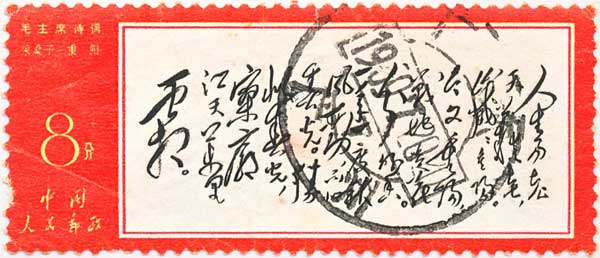 毛主席诗词
采桑子·重阳
8分
中国
人民邮政
人生易老
天难老,
岁岁重阳。
今又重阳,
战地黄花
分外香。
一年一度秋
风劲,不似
春光。胜
似春光,
寥廓
江天万里
霜。